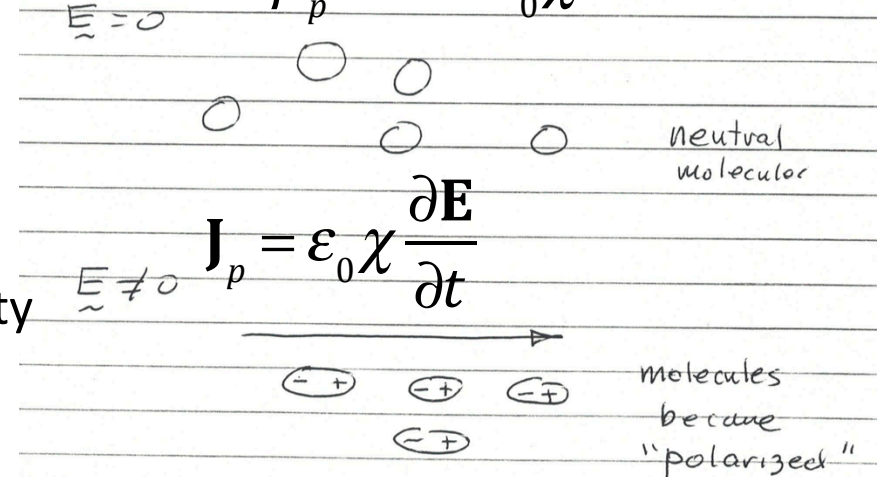 E = 0
neutral
molecular
J_p = ε_0 χ ∂E/∂t
E ≠ 0
ty
- + - + - +
molecules
- +
became
"polarized"